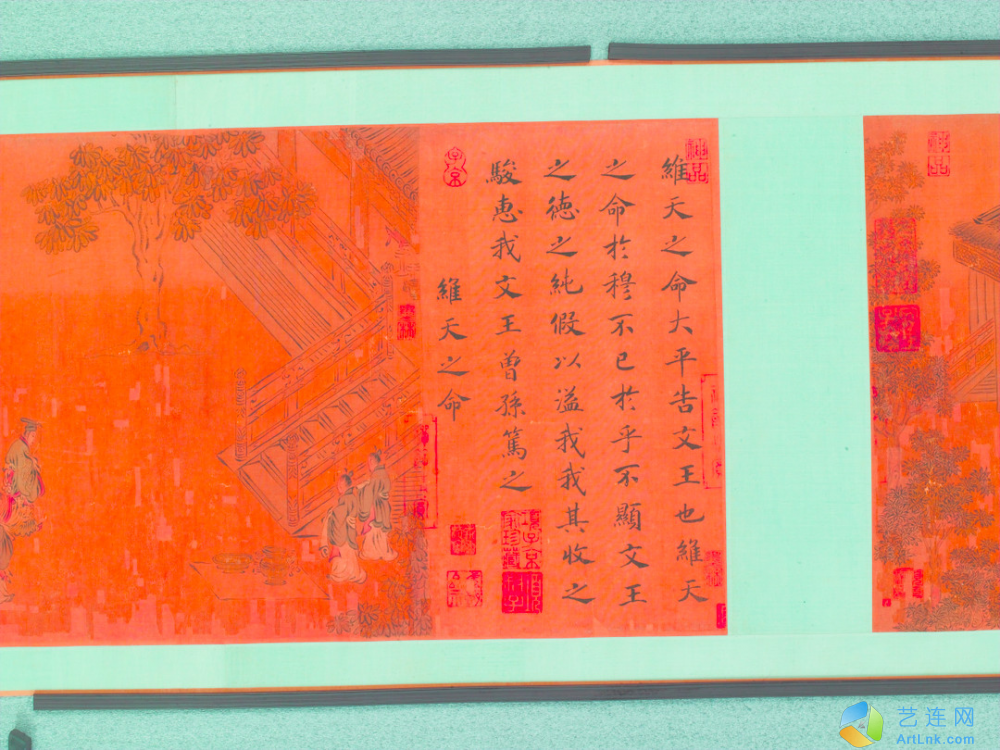 維天之命大平告文王也維天
之命於穆不已於乎不顯文王
之德之純假以溢我我其收之
駿惠我文王曾孫篤之
維天之命
項子京
家珍藏
神品
艺连网
ArtLnk.com